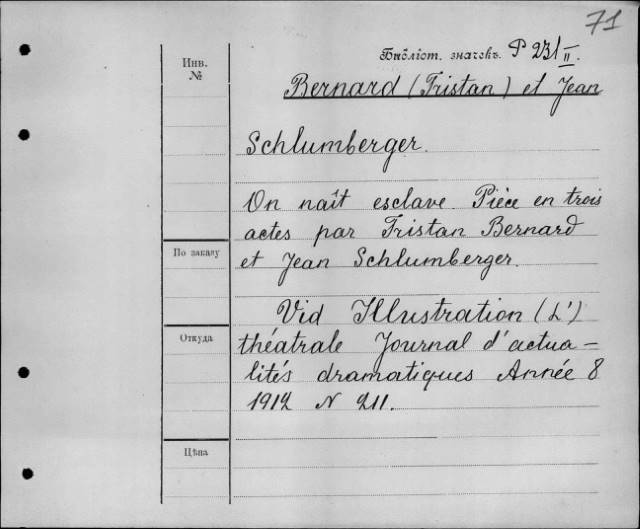 71
Библіот. значекъ P 231/II.
Инв. №
Bernard (Tristan) et Jean
Schlumberger.
On naît esclave. Pièce en trois
actes par Tristan Bernard
et Jean Schlumberger.
По заказу
Vid Illustration (L')
Откуда
théatrale Journal d'actua-
lités dramatiques Année 8
1912 N 211.
Цѣна